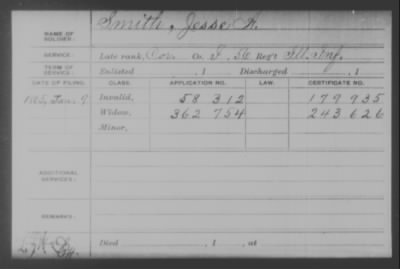 NAME OF SOLDIER: Smith, Jesse
SERVICE: Late rank, Cor. Co. I, 56 Reg't Ill. Inf.
TERM OF SERVICE: Enlisted , 1 , Discharged , 1
DATE OF FILING. CLASS. APPLICATION NO. LAW. CERTIFICATE NO.
Jan. 9 Invalid, 58 312 179 935
Widow, 362 754 243 626
Minor,
ADDITIONAL SERVICES:
REMARKS:
Died , 1 , at